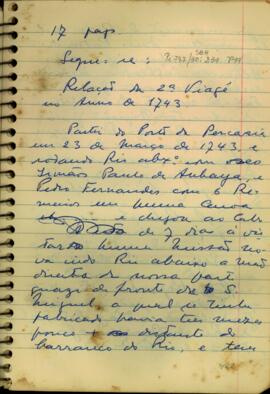 17 pags
Segue-se:
Relação da 2ª Viagē
no Anno de 1743.
Parti do Porto de
em 23 de Março de 1743, e
rodando Rio abxº com
Irmaos Paulo de Anhaya, e
Pedro Fernandes com 6 Re-
meiros em huma Canoa
e chegou ao Cabo
de 7 dias à vis
ta de huma Missão no
va indo Rio abaixo a mão
direita de nossa part
de fronte de S.
Miguel a qual se tinha
fabricado havia tres mezes
pouco + distante do
barranco do Rio, e tem